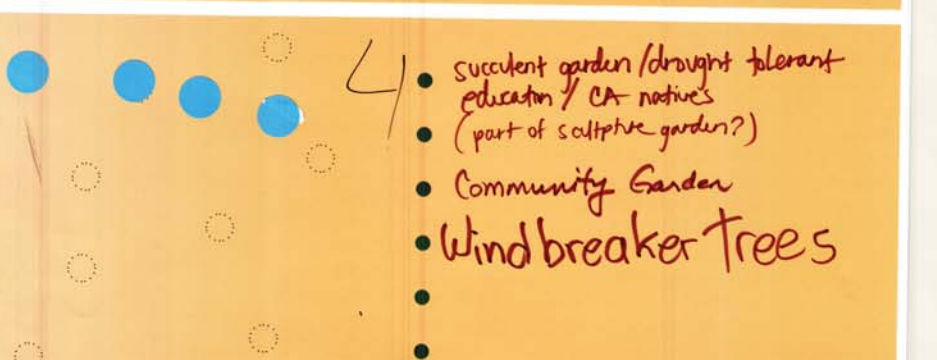 4
succulent garden/drought tolerant
education/ CA natives
(part of scultptve garden?)
Community Garden
Wind breaker Trees